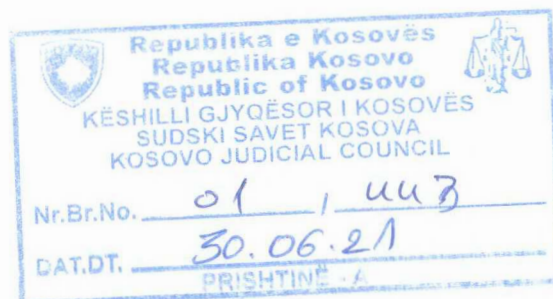 Republika e Kosovës
Republika Kosovo
Republic of Kosovo
KËSHILLI GJYQËSOR I KOSOVËS
SUDSKI SAVET KOSOVA
KOSOVO JUDICIAL COUNCIL
Nr.Br.No. 01 /
DAT.DT. 30.06.21
PRISHTINË - A